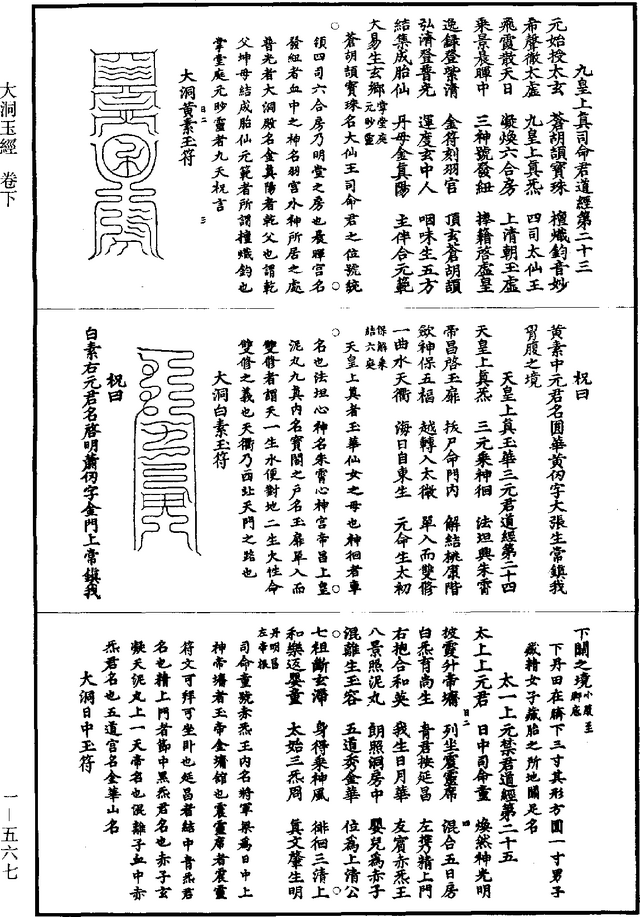 九皇上真司命君道經第二十三
元始授太玄 蒼胡頡寶珠 檀熾鈞音妙
希聲徹太虛 九皇上真炁 四司太仙王
飛霞散天日 凝煥六合房 上清朝王虛
乘景晨暉中 三神號發紐 捧籍啓虛皇
逸錄登紫清 金符刻羽官 頂玄蒼胡頡
弘濟登普光 運度玄中人 咽味生五方
結集成胎仙 丹母金真陽 主伴合元範
大易生玄鄉 掌堂庭元眇靈
蒼胡頡寶珠名大仙王司命君之位號統
領四司六合房乃明堂之房也晨暉宮名
發紐者血中之神名羽宮水神所居之處
普光者大洞殿名金真陽者乾父也謂乾
父坤母結成胎仙元範者所謂檀熾鈞也
掌堂庭元眇靈者九天祝言
大洞黃素玉符
祝曰
黃素中元君名圓華黃仞字大張生常鎮我
胃腹之境
天皇上真玉華三元君道經第二十四
天皇上真炁 三元乘神徊 法坦興朱霄
帝昌啓玉扉 挨尸命門內 解結桃康階
斂神保五楅 越轉入太微 單入而雙修
一曲水天衢 海日自東生 元命生太初
保解乘結六庭
天皇上真者玉華仙女之母也神徊者車
名也法坦心神名朱霄心神宮帝昌上皇
泥丸九真內名寶閣之戶名玉扉單入而
雙修者謂天一生水便對地二生火性命
雙修之義也天衢乃西北天門之路也
大洞白素玉符
祝曰
白素右元君名啓明蕭仞字金門上常鎮我
下關之境 小腹至脚底
下丹田在臍下三寸其形方圓一寸男子
藏精女子藏胎之所地關足名
太一上元禁君道經第二十五
太上上元君 日中司命童 煥然神光明
披霞升帝墉 列坐震靈席 混合五日房
白炁育尚生 青君挨延昌 左携精上門
右抱合和英 我生日月華 友賓赤炁王
八景照泥丸 朗照洞房中 嬰兒為赤子
混離生玉容 五道秀金華 位為上清公
七祖斷玄滯 身得乘神風 徘徊三清上
和樂返嬰童 太始三炁周 真文肇生明
丹明昌左帝振
司命童號赤炁王內名將軍梁為日中上
神帝墉者玉帝金墉館也震靈席者震靈
符文可拜可坐臥也延昌者結中青炁君
名也精上門者節中黑炁君名也赤子玄
凝天泥丸上一天帝名也混離子血中赤
炁君名也五道宮名金華山名
大洞日中玉符
大洞玉經 卷下
一—五六七